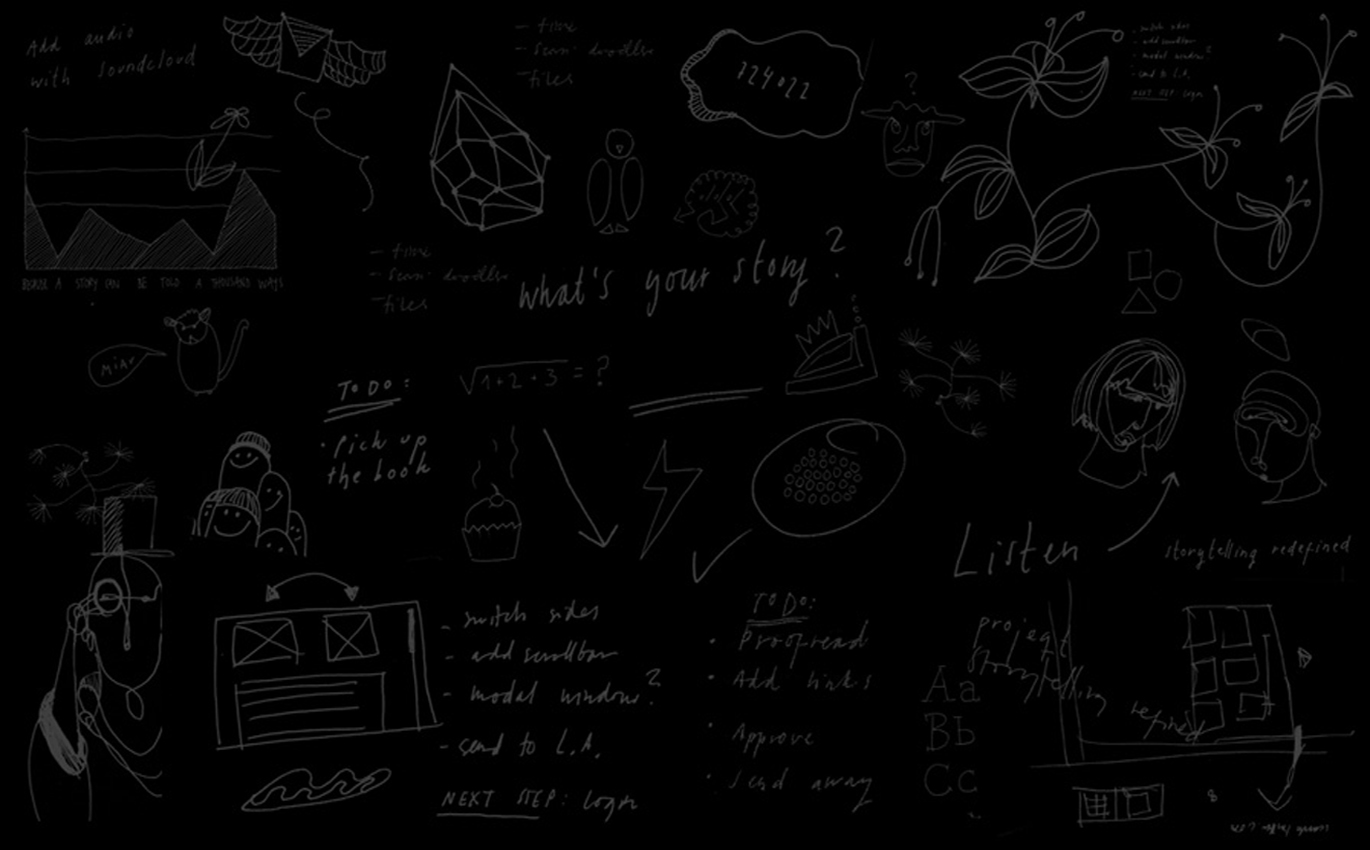 Add audio
with Soundcloud
- time
- scan doodles
- files
724022
?
- switch sides
- add scrollbar
- modal window?
- send to L.A.
NEXT STEP: Login
BECAUSE A STORY CAN BE TOLD A THOUSAND WAYS
- time
- scan doodles
- files
What's your story?
MIAV
TO DO:
• Pick up
the book
√1+2+3 = ?
Listen
storytelling redefined
- switch sides
- add scrollbar
- modal window?
- send to L.A.
NEXT STEP: Login
TO DO:
• Proofread
• Add links
• Approve
• Send away
Aa
Bb
Cc
project
storytelling
refined
8